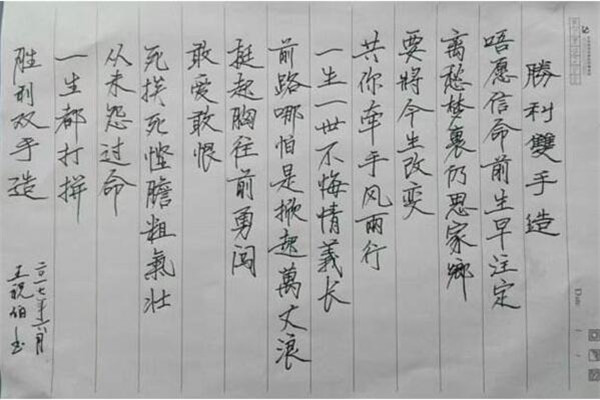 勝利雙手造
唔愿信命前生早注定
离愁梦裏仍思家鄉
要將今生改变
共你牵手风雨行
一生一世不悔情義长
前路哪怕是掀起萬丈浪
挺起胸往前勇闯
敢爱敢恨
死挨死悭膽粗氣壮
从未怨过命
一生都打拼
胜利双手造
二〇一七年六月
王锐伯书
Date